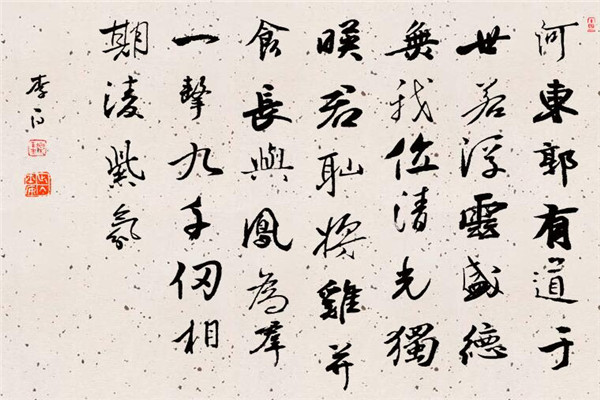 河東郭有道于
世若浮雲盛德
無我位清光獨
暎君耻將雞并
食長與鳳為羣
一擊九千仞相
期淩紫氛
李